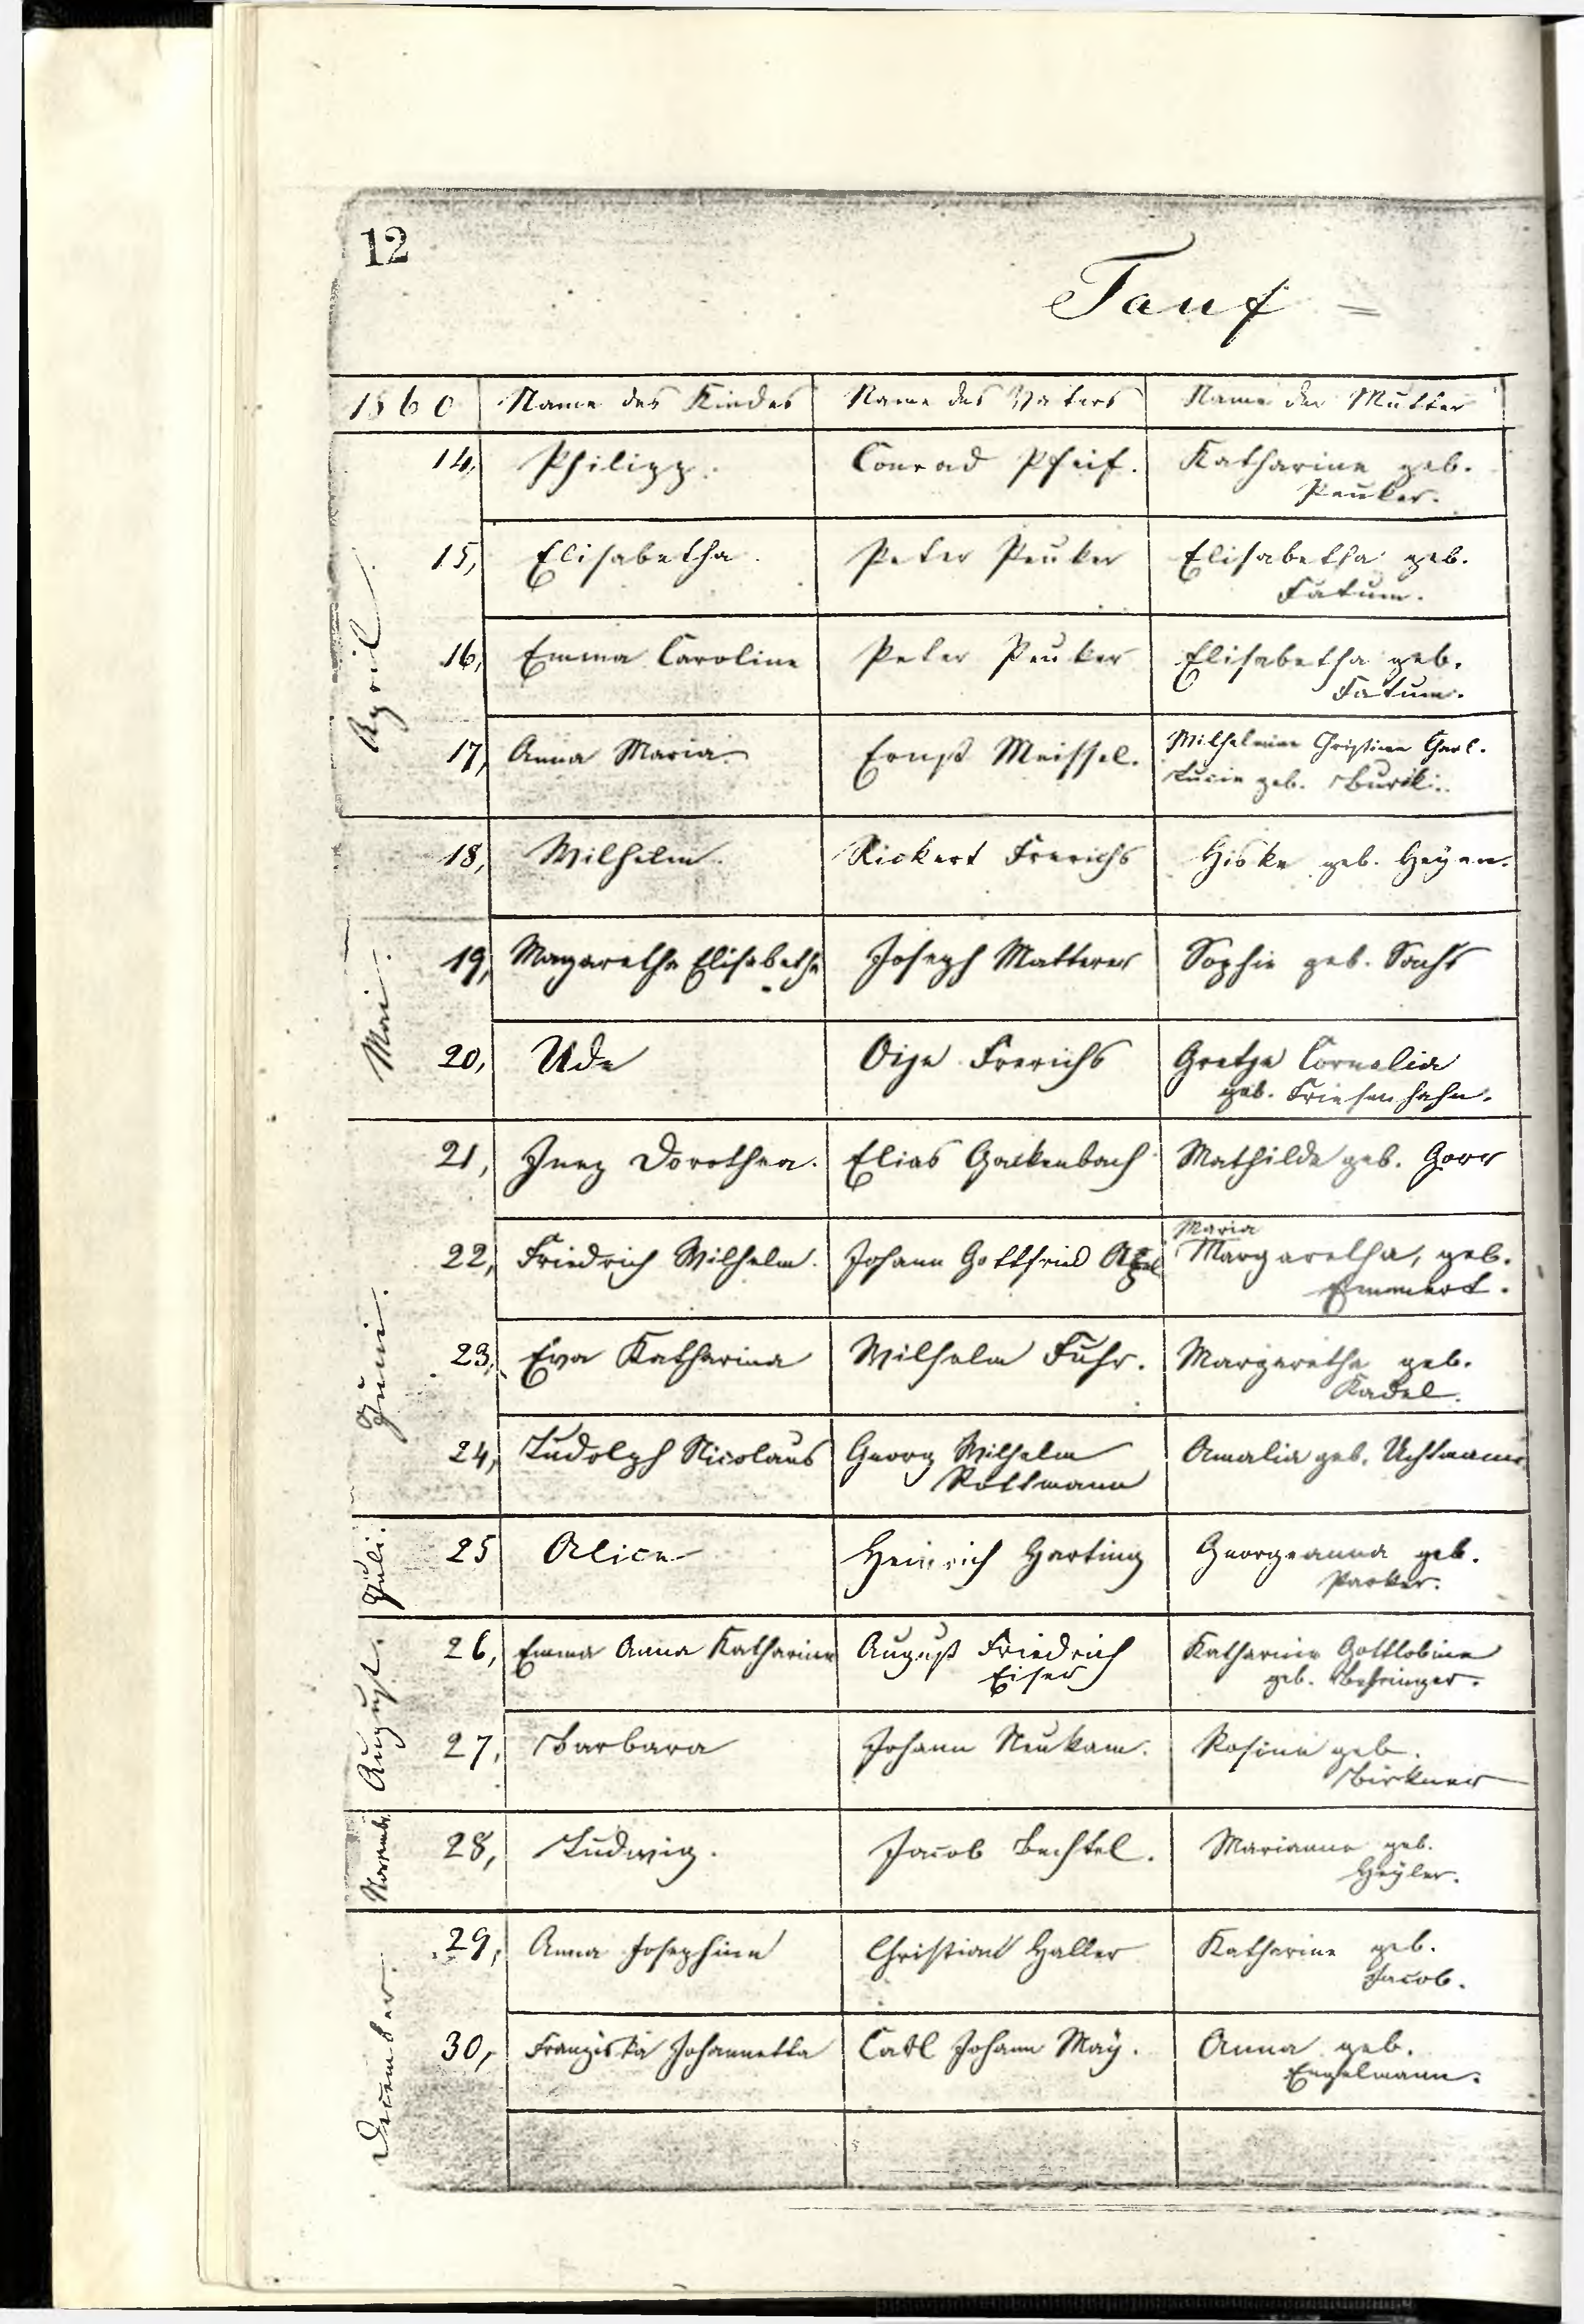 12
Tauf =
1860 Name des Kindes Name des Vaters Name der Mutter
April.
14, Philipp. Conrad Pfeif. Katharine geb.
Peuker.
15, Elisabetha. Peter Peuker Elisabetha geb.
Fatum.
16, Emma Caroline Peter Peuker Elisabetha geb.
Fatum.
17, Anna Maria. Ernst Meissel. Wilhelmine Christine Charl.
Lucie geb.
Mai.
18, Wilhelm. Rickert Frerichs Hiske geb. Heyen.
19, Magaretha Elisabetha Joseph Matterer Sophie geb. Sachs
20, Ude Oije Frerichs Gretje Cornelia
geb. Friesenhahn.
Juni.
21, Inez Dorothea. Elias Gackenbach Mathilde geb. Gorr
22, Friedrich Wilhelm. Johann Gottfried Maria
Margaretha, geb.
Emmert.
23, Eva Katharina Wilhelm Fuhr. Margaretha geb.
Kadel.
24, Ludolph Nicolaus Georg Wilhelm Amalia geb. Uchtmann
Rottmann
Juli.
25 Alice Heinrich Harting Georgeanna geb.
Parker.
August.
26, Emma Anna Katharine August Friedrich Katharine Gottlobine
Eiser geb. Behringer.
27, Barbara Johann Neukam. Rosine geb.
Birkner
November
28, Ludwig. Jacob Bechtel. Marianne geb.
Heyler.
December.
29, Anna Josephine Christian Haller Katharine geb.
Jacob.
30, Franziska Johannetta Carl Johann May. Anna geb.
Engelmann.